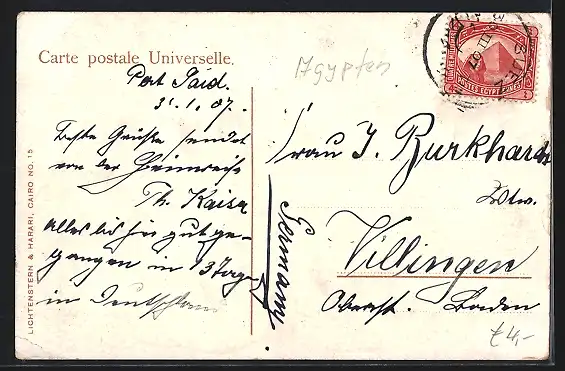 Carte postale Universelle.
Ägypten
Port Said.
31.1.07.
Beste Grüße sendet
von der Heimreise
Th. Kaiser
alles bis hier gut ge-
gangen in 13 Tagen
in Deutschland
Frau J. Burkhardt
Wtw.
Villingen
Baden
Germany
€4,-
LICHTENSTERN & HARARI, CAIRO NO. 15
POSTES EGYPTIENNES